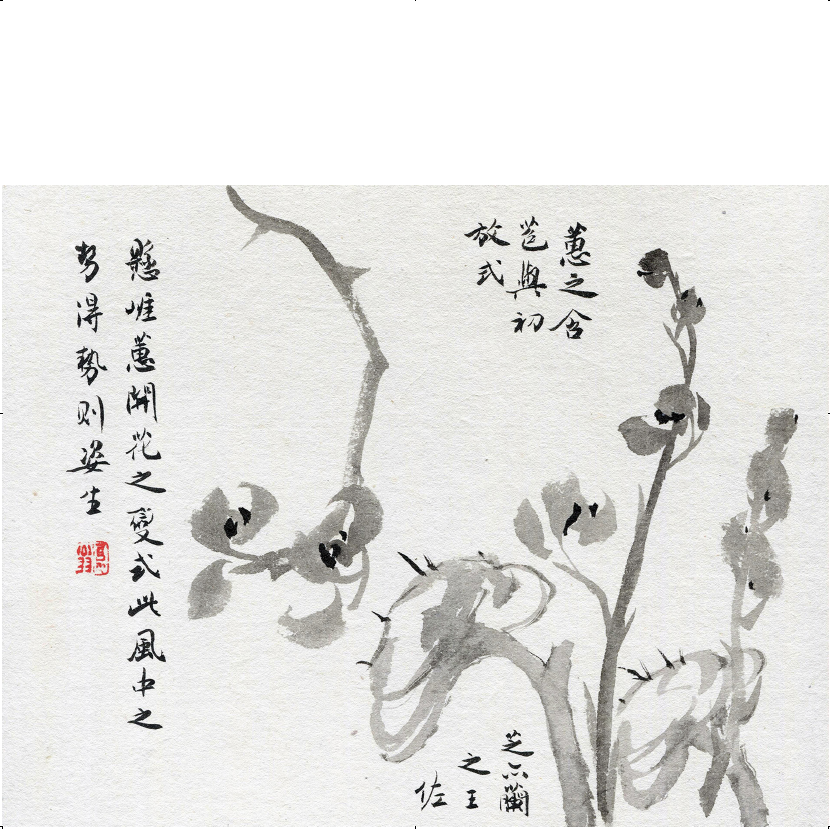 蕙之含
苞與初
放式
懸崖蕙開花之變式此風中之
势得勢则姿生
芝亦蘭
之王
佐